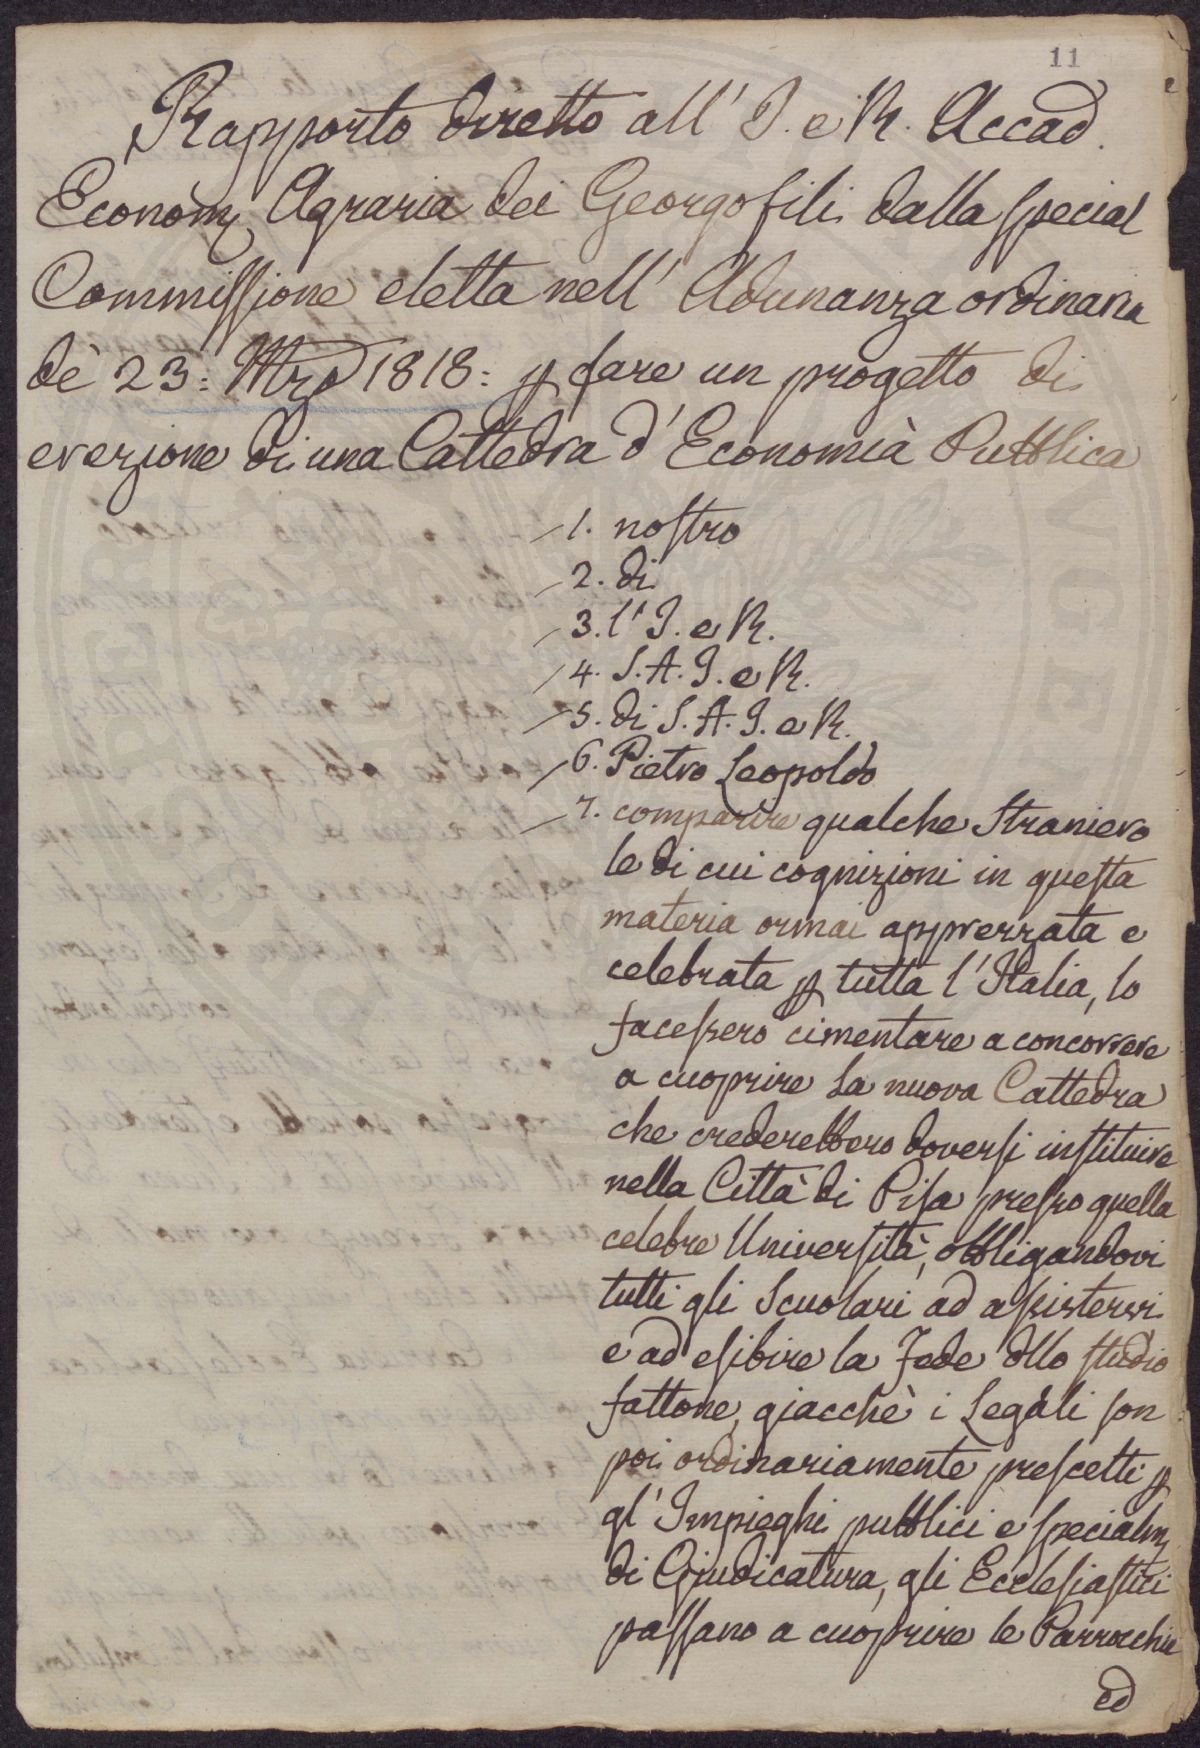 11
Rapporto diretto all' I. e R. Accad.
Econom. Agraria dei Georgofili dalla special
Commissione eletta nell' Adunanza ordinaria
dè 23: Mrzo 1818: p fare un progetto di
erezione di una Cattedra d' Economià Pubblica
1. nostro
2. di
3. l' I. e R.
4. S. A. I. e R.
5. di S. A. I. e R.
6. Pietro Leopoldo
7. comparire qualche Straniero
le di cui cognizioni in questa
materia ormai apprezzata e
celebrata p tutta l' Italia, lo
facessero cimentare a concorrere
a cuoprire la nuova Cattedra
che crederebbero doversi instituire
nella Città di Pisa presso quella
celebre Università, obbligandovi
tutti gli Scuolari ad assistervi
e ad esibire la Fede dllo studio
fattone, giacchè i Legali son
poi ordinariamente prescelti p
gl' Impieghi pubblici e specialm
di Giudicatura, gli Ecclesiastici
passano a cuoprire le Parrocchie
ed